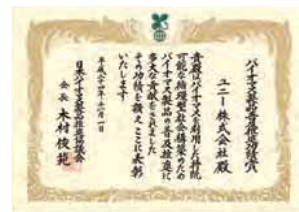 バイオマス製品普及推進功績賞
ユニー株式会社殿
貴殿はバイオマスを利用した持続
可能な循環型社会構築のため
バイオマス製品の普及推進に
多大な貢献をされました
その功績を讃えここに表彰
いたします
平成二十四年十一月一日
日本バイオマス製品推進協議会
会長 木村俊範